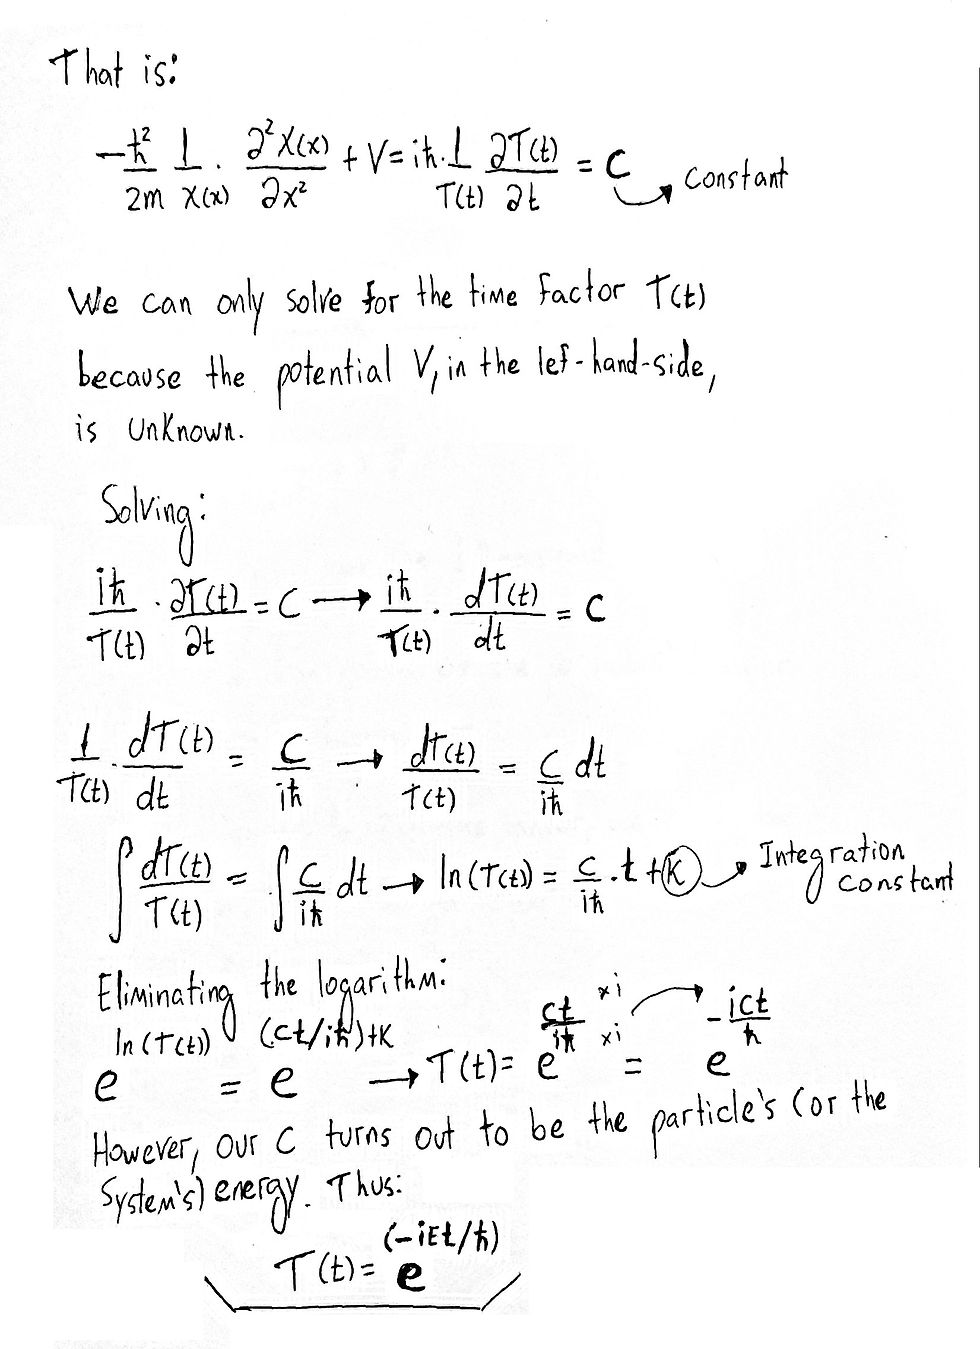 That is:
-ħ²/2m 1/X(x) · ∂²X(x)/∂x² + V = iħ · 1/T(t) ∂T(t)/∂t = C → constant
We can only solve for the time factor T(t)
because the potential V, in the lef-hand-side,
is unknown.
Solving:
iħ/T(t) · ∂T(t)/∂t = C → iħ/T(t) · dT(t)/dt = C
1/T(t) · dT(t)/dt = C/iħ → dT(t)/T(t) = C/iħ dt
∫ dT(t)/T(t) = ∫ C/iħ dt → ln(T(t)) = C/iħ · t + K → Integration constant
Eliminating the logarithm:
e^ln(T(t)) = e^(ct/iħ)+K → T(t) = e^ct/iħ xi xi = e^-ict/ħ
However, our C turns out to be the particle's (or the
system's) energy. Thus:
T(t) = e^(-iEt/ħ)